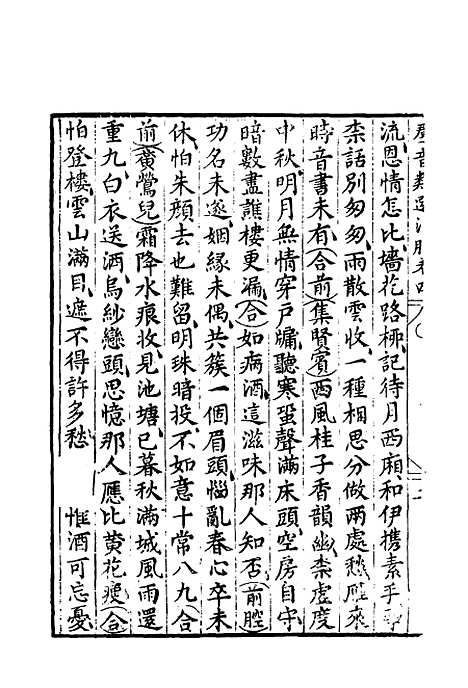 流恩情怎比墻花路柳記待月西廂和伊携素手爭
柰話別匆匆雨散雲收一種相思分做兩處愁雁來
時音書未有合前集賢賓西風桂子香韻幽柰虛度
中秋明月無情穿戶牖聽寒蛩聲滿床頭空房自守
暗數盡譙樓更漏合如病酒這滋味那人知否前腔
功名未遂姻緣未偶共簇一個眉頭惱亂春心卒未
休怕朱顏去也難留明珠暗投不如意十常八九合
前黃鶯兒霜降水痕收見池塘已暮秋滿城風雨還
重九白衣送酒烏紗戀頭思憶那人應比黃花瘦合
怕登樓雲山滿目遮不得許多愁 惟酒可忘憂